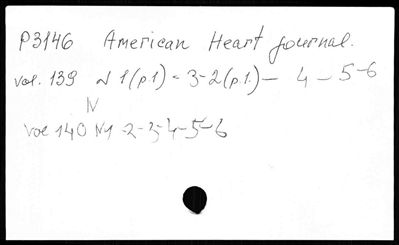 P3146 American Heart Journal.
vol. 139 N 1(p.1) - 3-2(p.1.) - 4 - 5-6
N
vol 140 N1 -2-3-4-5-6